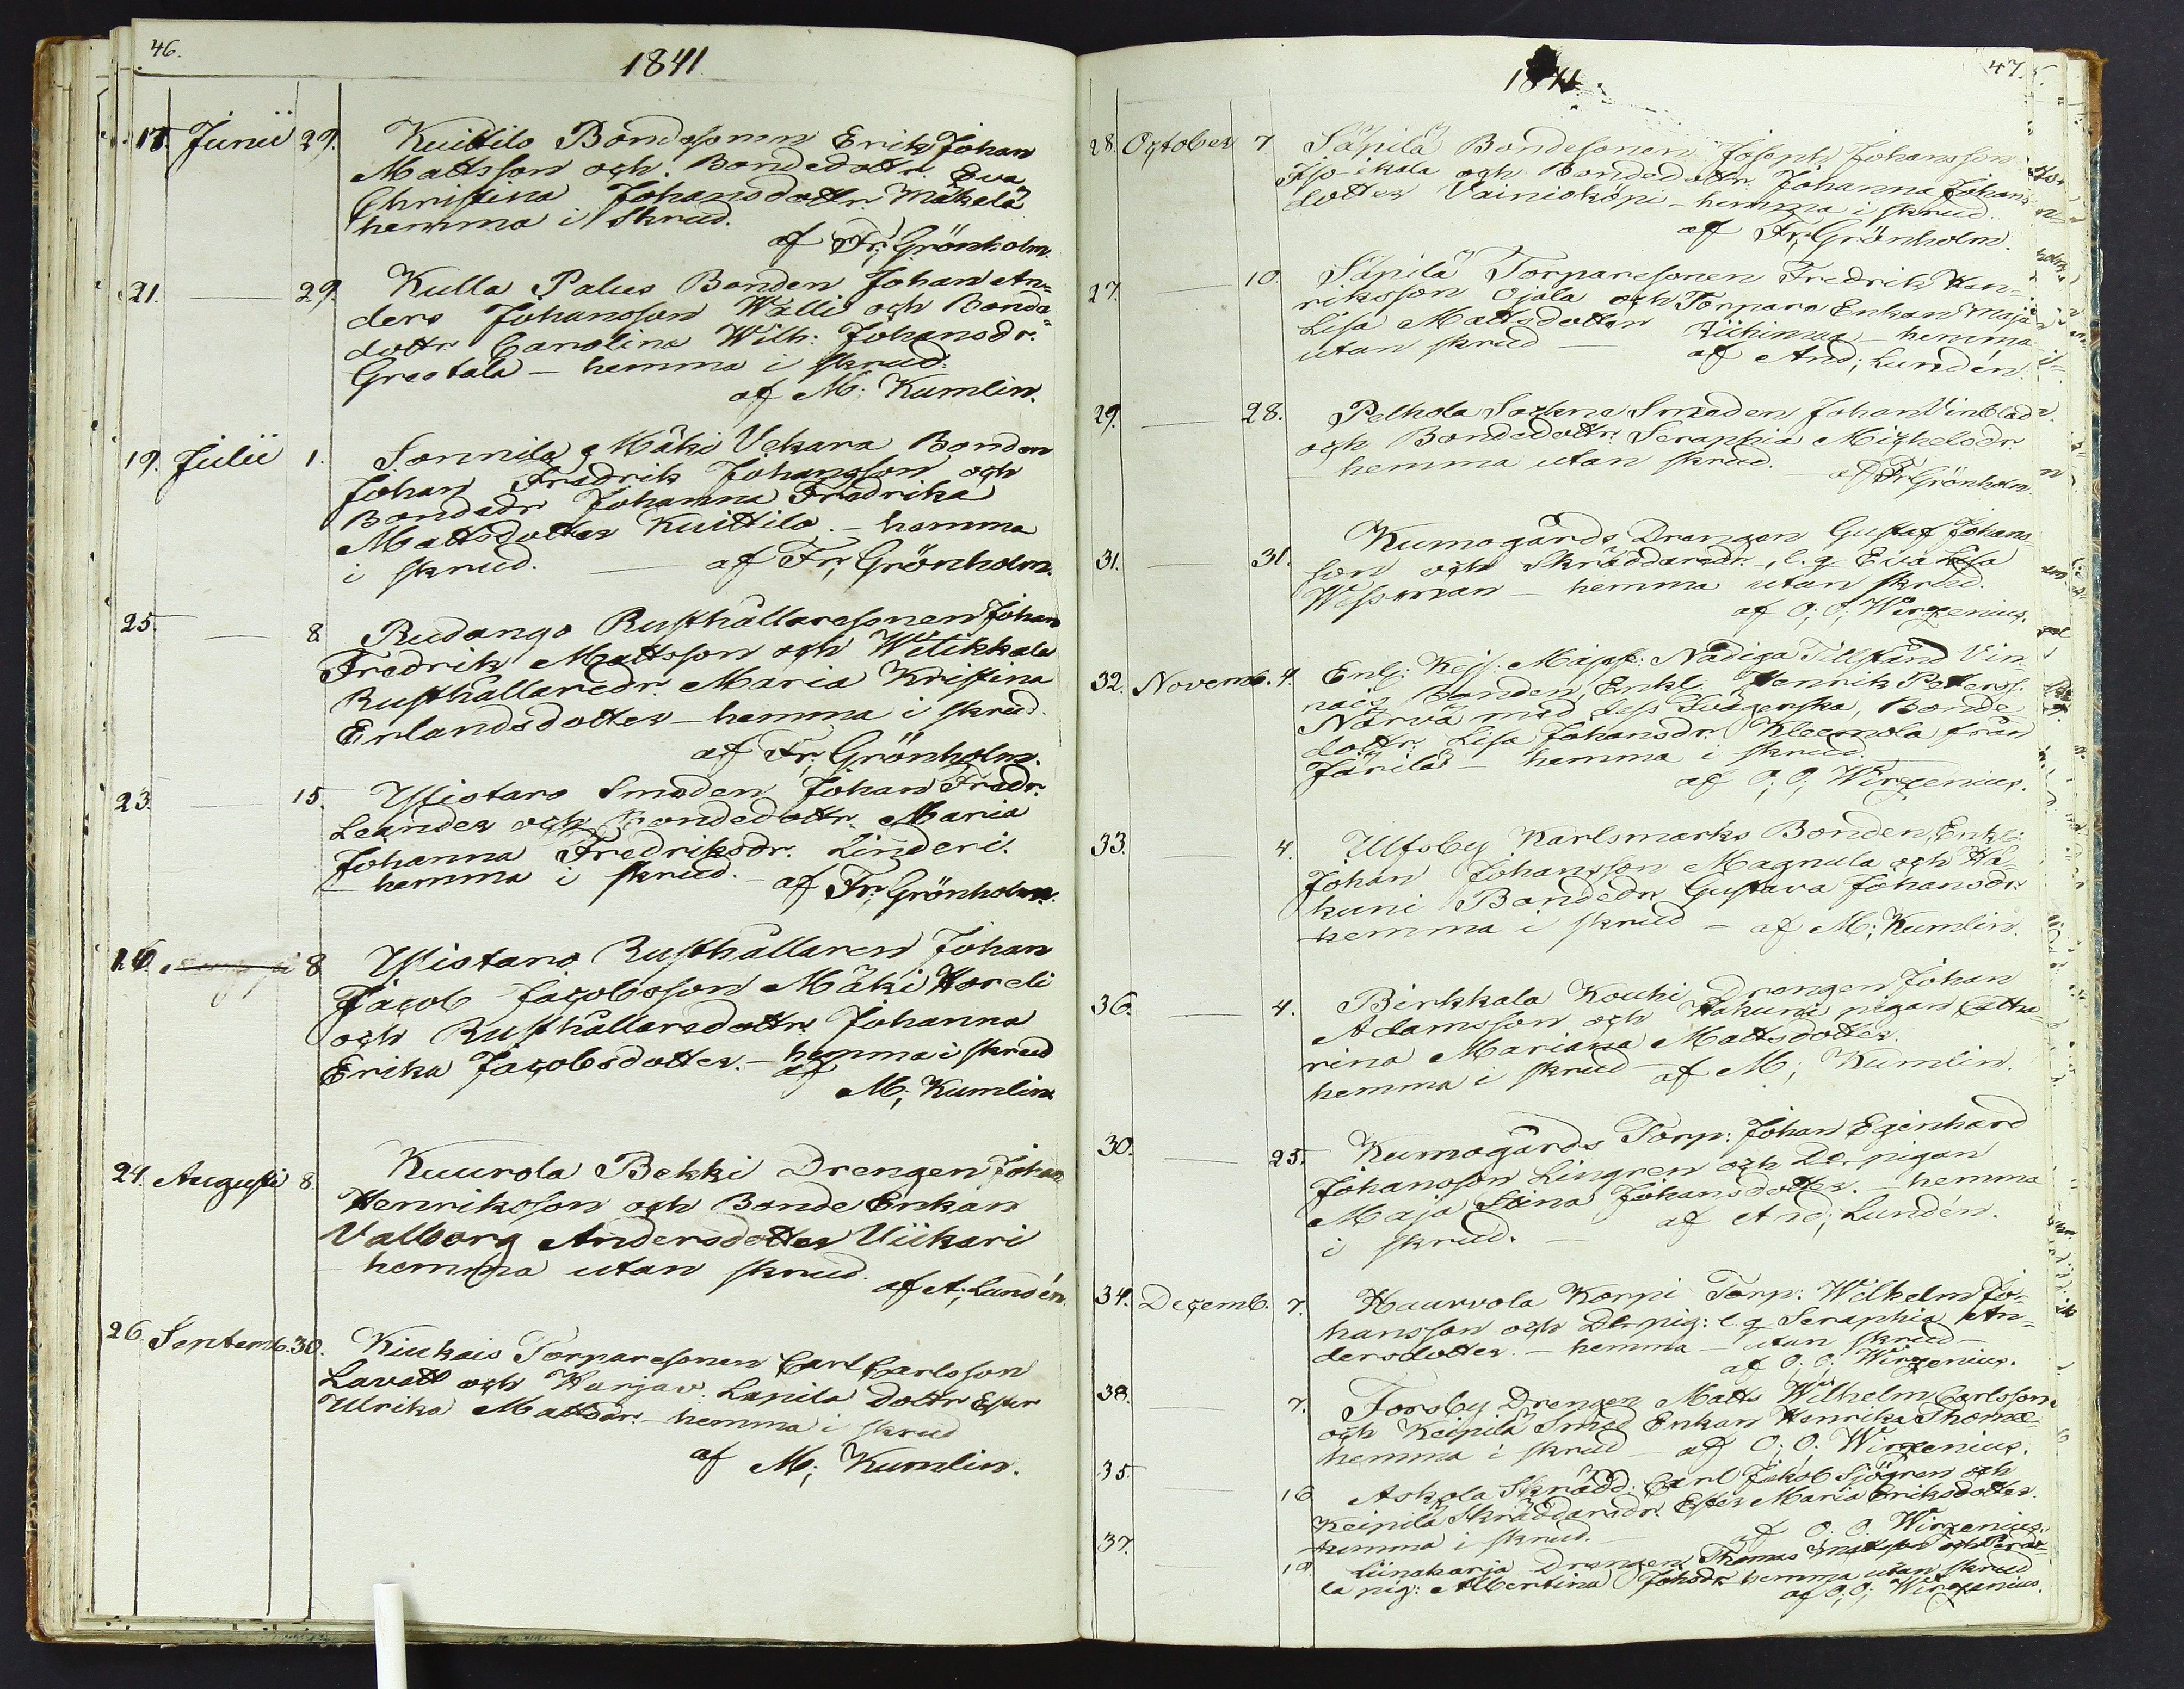 46.
1841
18. Junii 29. Kuittilo Bondesonen Erik Johan
Mattsson och Bondedottr. Eva
Christina Johansdottr Mäkelä
hemma i skrud.
af Fr; Grönholm.
21. — 29. Kulla Palus Bonden Johan An-
ders Johansson Wälli och Bonde-
dottr Carolina Wilh: Johansdr.
Greotala — hemma i skrud.
af M: Kumlin.
19. Julii 1. Sonnila Mäki Vekara Bonden
Johan Fredrik Johansson och
Bondedr Johanna Fredrika
Mattsdotter Kuittilo. — hemma
i skrud. — af Fr; Grönholm.
25. — 8 Rudango Rusthållaresonen Johan
Fredrik Mattsson och Witikkala
Rusthållaredr. Maria Kristina
Erlandsdotter — hemma i skrud.
af Fr; Grönholm.
23. — 15. Ylistaro Smeden Johan Fredr.
Leander och Bondedottr. Maria
Johanna Fredriksdr. Linderi.
— hemma i skrud. — af Fr; Grönholm.
8 Ylistaro Rusthållaren Johan
Jacob Jacobsson Mäki Horeli
och Rusthållaredottr. Johanna
Erika Jacobsdotter. — hemma i skrud
af
M; Kumlin
24. Augusti 8. Kuurola Bekki Drengen Johan
Henriksson och Bonde Enkan
Valborg Andersdotter Viikari
— hemma utan skrud.
af A; Lundén.
26. Septemb. 30. Kiukais Torparesonen Carl Carlsson
Lavett och Harjav. Lapila Dottr Ester
Ulrika Mattsdr. — hemma i skrud
af M; Kumlin.
47.
1841.
28. October 7. Säpilä Bondesonen Joseph Johansson
Iso-ikala och Bondedottr. Johanna Johans-
dotter Vainioköpi — hemma i skrud.
af Fr; Grönholm.
27. — 10. Säpilä Torparesonen Fredrik Hen-
riksson Ojala och Torpare Enkan Maja
Lisa Mattsdotter Riihimaa — hemma
utan skrud — af And; Lundén.
29. — 28. Pelhola Sockne Smeden Johan Vinblad
och Bondedottr. Seraphia Michelsdr.
— hemma utan skrud. — af Fr Grönholm.
31. — 31. Kumogårds Drengen Gustaf Johans-
son och Skräddaredr., l. q. Eva Lisa
Wessman — hemma utan skrud.
af O; O; Wirzenius.
32. Novemb. 4. Enl; Kejs. Majest: Nådiga Tillstånd Vin-
näs Bonden, Enkl; Henrik Petterss.
Närvä med dess Svägerska, Bonde
dottr. Lisa Johansdr. Kleemola från
Järilä — hemma i skrud.
af O; O; Wirzenius.
33. — 4. Ulfsby Karlsmarks Bonden, Enkl;
Johan Johansson Magnula och Ha-
kuni Bondedr Gustava Johansdr.
hemma i skrud — af M; Kumlin.
36. — 4. Birkkala Kouhi Drengen Johan
Adamsson och Hakuni pigan Catha-
rina Mariana Mattsdotter.
hemma i skrud — af M; Kumlin.
30. — 25. Kumogårds Torp: Johan Egenhard
Johansson Lingren och Do. pigan
Maja Stina Johansdotter. — hemma
i skrud. — af And; Lundén.
34. Decemb. 7. Haurvola Korpi Torp: Wilhelm Jo-
hansson och Do pig: l. q. Seraphia An-
dersdotter. — hemma — utan skrud —
af O; O; Wirzenius.
38. 7. Forsby Drengen Matts Wilhelm Carlsson
och Keipilä Smed Enkan Henrika Thomæ-
hemma i skrud — af O; O; Wirzenius.
35. — 16 Askola Skrädd: Carl Jakob Sjögren och
Keipilä Skräddaredr. Ester Maria Eriksdotter.
hemma i skrud. — af O. O. Wirzenius.
37. — 19 Liinaharja Drengen Thomas Mattsson och Perä-
la pig: Albertina Johsdr. hemma utan skrud
af O; O; Wirzenius.